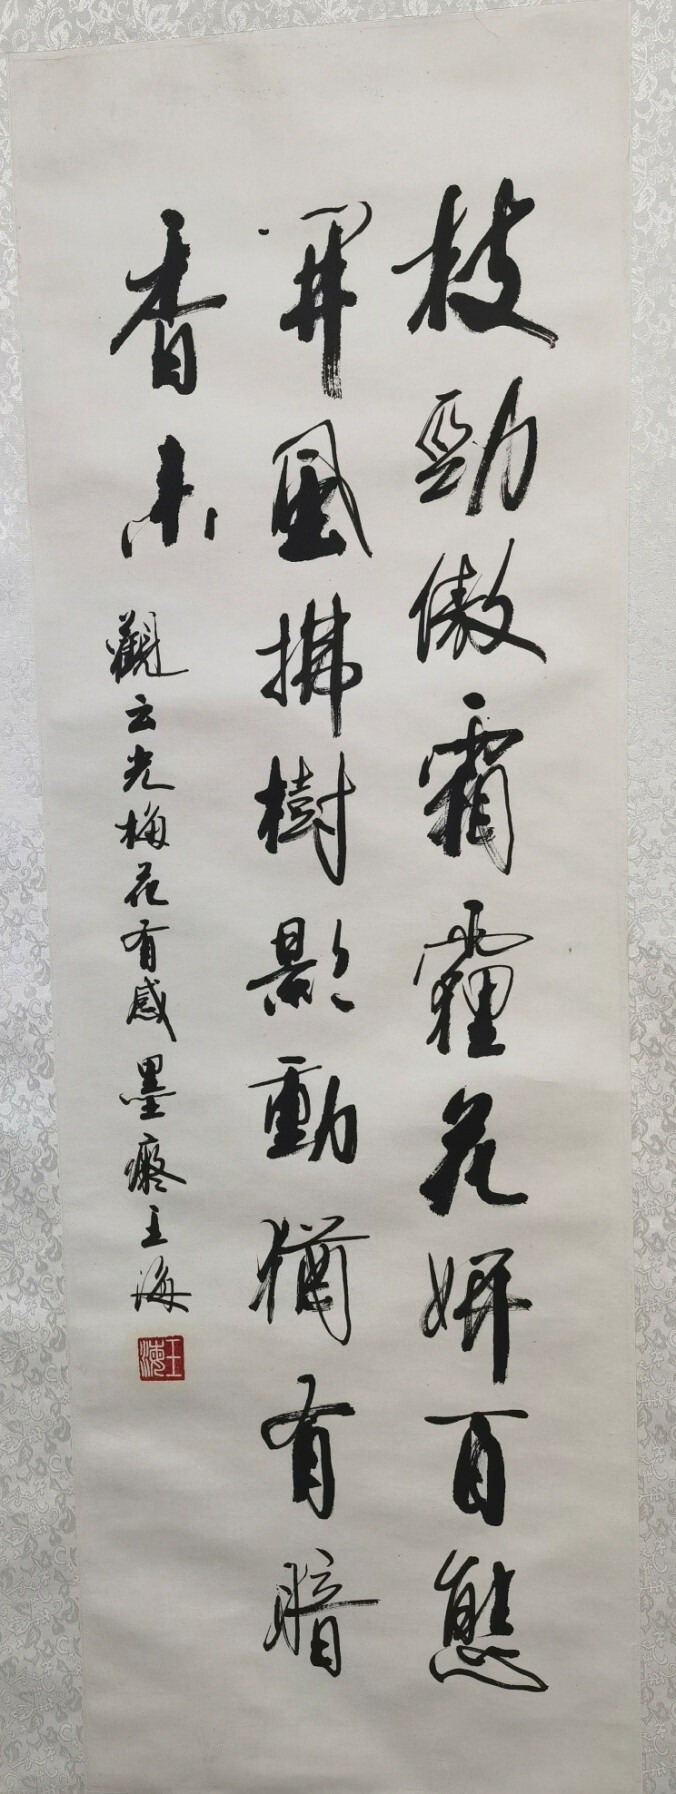 枝勁傲霜霾花妍百態
開風拂樹影動猶有暗
香来
觀云光梅花有感墨癡王海
王海